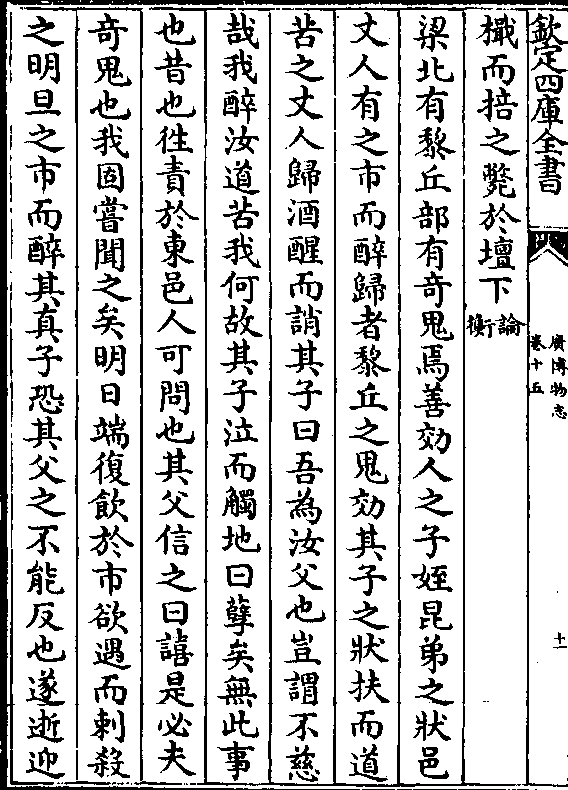 欽定四庫全書
廣博物志
卷十五
十一
檝而掊之斃於壇下論衡
梁北有黎丘部有奇鬼焉善効人之子姪昆弟之狀邑
丈人有之市而醉歸者黎丘之鬼効其子之狀扶而道
苦之丈人歸酒醒而誚其子曰吾為汝父也豈謂不慈
哉我醉汝道苦我何故其子泣而觸地曰孽矣無此事
也昔也徃責於東邑人可問也其父信之曰譆是必夫
奇鬼也我固嘗聞之矣明日端復飲於市欲遇而刺殺
之明旦之市而醉其真子恐其父之不能反也遂逝迎